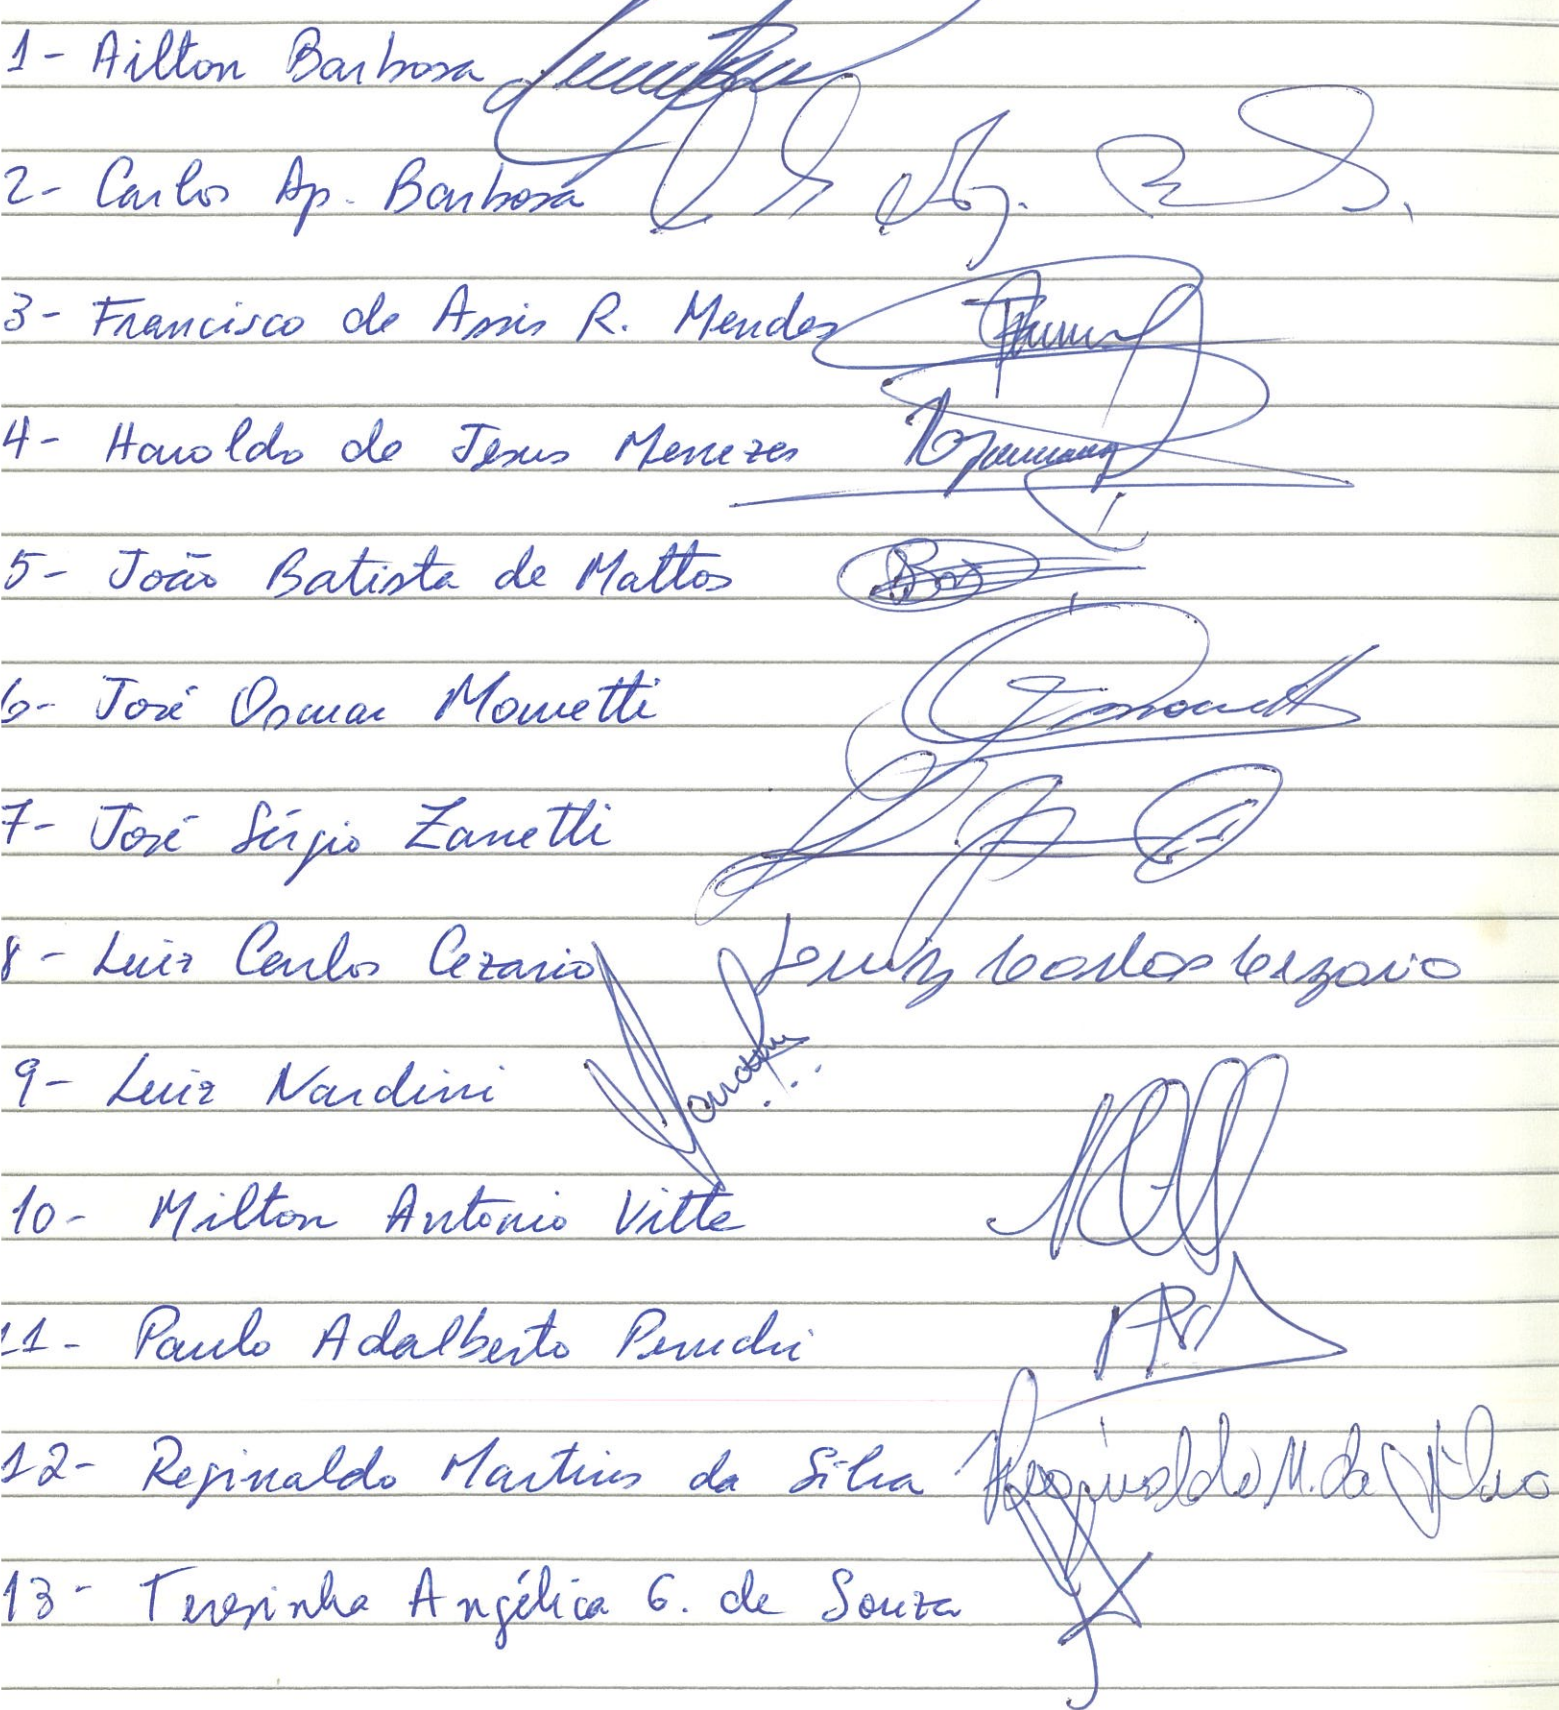 1- Ailton Barbosa
2- Carlos Ap. Barbosa
3- Francisco de Assis R. Mendes
4- Haroldo de Jesus Menezes
5- João Batista de Mattos
6- José Osmar Mometti
7- José Sérgio Zanetti
8- Luiz Carlos Cezario Luiz Carlos Cezario
9- Luiz Nardini
10- Milton Antonio Vitte
11- Paulo Adalberto Peruchi
12- Reginaldo Martins da Silva Reginaldo M. da Silva
13- Teresinha Angélica G. de Souza